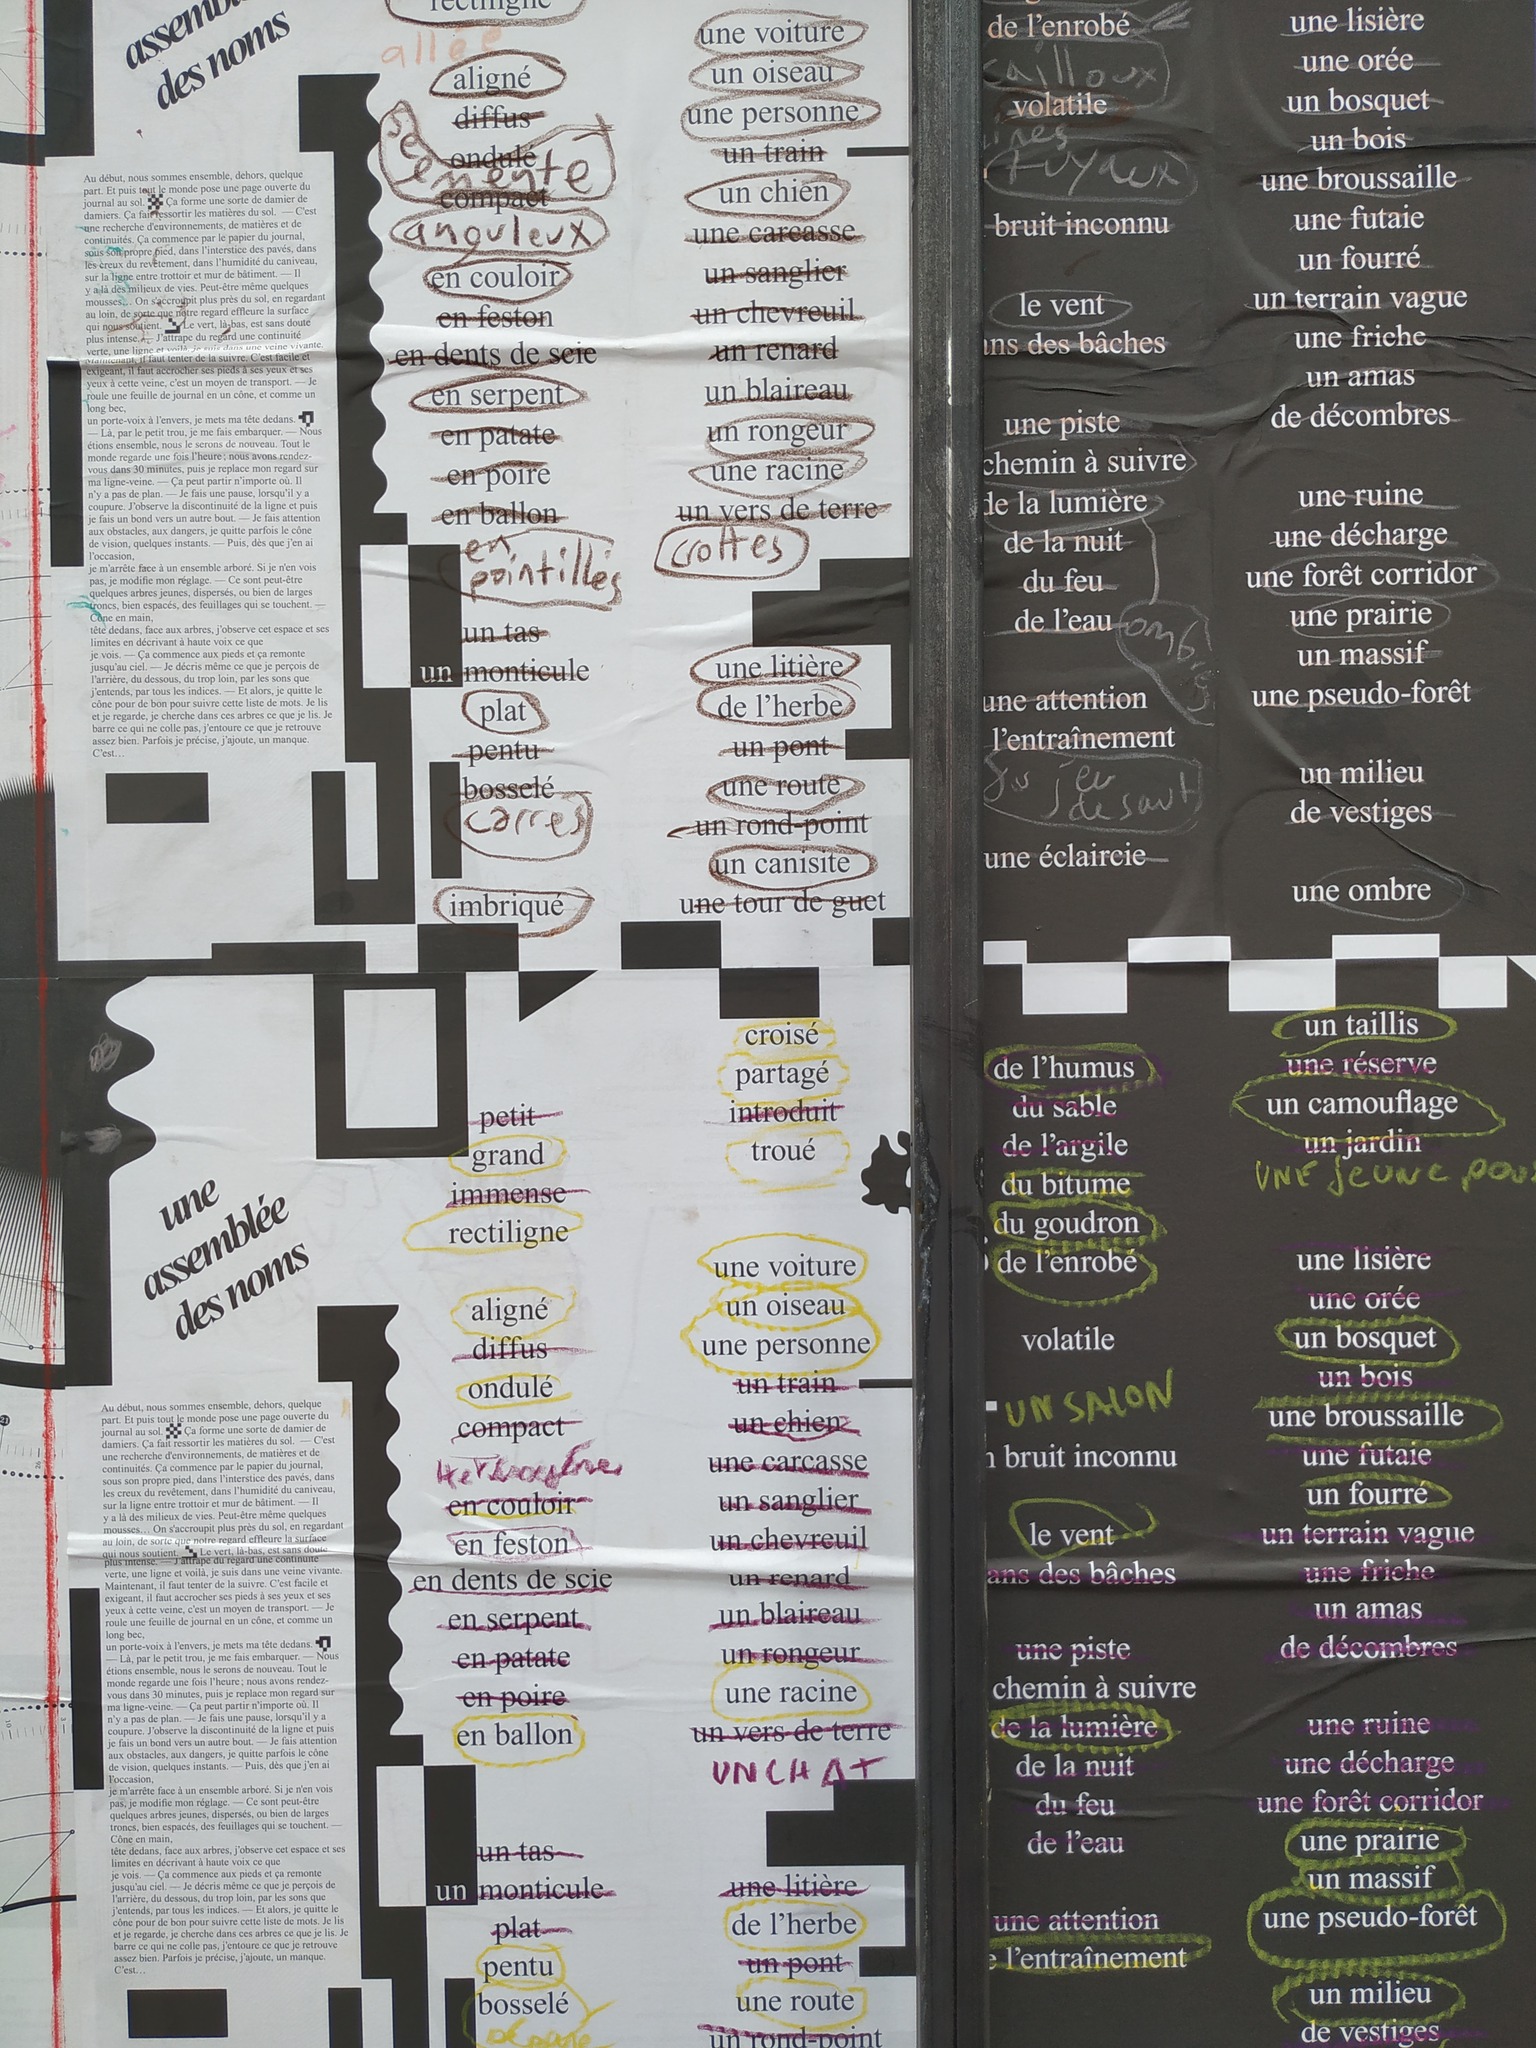 rectiligne
assemblée
des noms
allée
aligné
diffus
ondulé
compact
anguleux
en couloir
en feston
en dents de scie
en serpent
en patate
en poire
en ballon
en
pointillés
un tas
un monticule
plat
pentu
bosselé
carrés
imbriqué
une voiture
un oiseau
une personne
un train
un chien
une carcasse
un sanglier
un chevreuil
un renard
un blaireau
un rongeur
une racine
un vers de terre
crottes
une litière
de l'herbe
un pont
une route
un rond-point
un canisite
une tour de guet
Au début, nous sommes ensemble, dehors, quelque
part. Et puis tout le monde pose une page ouverte du
journal au sol. Ça forme une sorte de damier de
damiers. Ça fait ressortir les matières du sol. — C'est
une recherche d'environnements, de matières et de
continuités. Ça commence par le papier du journal,
sous son propre pied, dans l'interstice des pavés, dans
les creux du revêtement, dans l'humidité du caniveau,
sur la ligne entre trottoir et mur de bâtiment. — Il
y a là des milieux de vies. Peut-être même quelques
mousses… On s'accroupit plus près du sol, en regardant
au loin, de sorte que notre regard effleure la surface
qui nous soutient. Le vert, là-bas, est sans doute
plus intense. — J'attrape du regard une continuité
verte, une ligne et voilà, je suis dans une veine vivante.
Maintenant, il faut tenter de la suivre. C'est facile et
exigeant, il faut accrocher ses pieds à ses yeux et ses
yeux à cette veine, c'est un moyen de transport. — Je
roule une feuille de journal en un cône, et comme un
long bec,
un porte-voix à l'envers, je mets ma tête dedans.
— Là, par le petit trou, je me fais embarquer. — Nous
étions ensemble, nous le serons de nouveau. Tout le
monde regarde une fois l'heure ; nous avons rendez-
vous dans 30 minutes, puis je replace mon regard sur
ma ligne-veine. — Ça peut partir n'importe où. Il
n'y a pas de plan. — Je fais une pause, lorsqu'il y a
coupure. J'observe la discontinuité de la ligne et puis
je fais un bond vers un autre bout. — Je fais attention
aux obstacles, aux dangers, je quitte parfois le cône
de vision, quelques instants. — Puis, dès que j'en ai
l'occasion,
je m'arrête face à un ensemble arboré. Si je n'en vois
pas, je modifie mon réglage. — Ce sont peut-être
quelques arbres jeunes, dispersés, ou bien de larges
troncs, bien espacés, des feuillages qui se touchent. —
Cône en main,
tête dedans, face aux arbres, j'observe cet espace et ses
limites en décrivant à haute voix ce que
je vois. — Ça commence aux pieds et ça remonte
jusqu'au ciel. — Je décris même ce que je perçois de
l'arrière, du dessous, du trop loin, par les sons que
j'entends, par tous les indices. — Et alors, je quitte le
cône pour de bon pour suivre cette liste de mots. Je lis
et je regarde, je cherche dans ces arbres ce que je lis. Je
barre ce qui ne colle pas, j'entoure ce que je retrouve
assez bien. Parfois je précise, j'ajoute, un manque.
C'est…
de l'enrobé
cailloux
volatile
tuyaux
bruit inconnu
le vent
ans des bâches
une piste
chemin à suivre
de la lumière
de la nuit
du feu
de l'eau
une attention
l'entraînement
une éclaircie
une lisière
une orée
un bosquet
un bois
une broussaille
une futaie
un fourré
un terrain vague
une friche
un amas
de décombres
une ruine
une décharge
une forêt corridor
une prairie
un massif
une pseudo-forêt
un milieu
de vestiges
une ombre
une
assemblée
des noms
petit
grand
immense
rectiligne
aligné
diffus
ondulé
compact
en couloir
en feston
en dents de scie
en serpent
en patate
en poire
en ballon
un tas
un monticule
plat
pentu
bosselé
croisé
partagé
introduit
troué
une voiture
un oiseau
une personne
un train
un chien
une carcasse
un sanglier
un chevreuil
un renard
un blaireau
un rongeur
une racine
un vers de terre
UN CHAT
une litière
de l'herbe
un pont
une route
un rond-point
Au début, nous sommes ensemble, dehors, quelque
part. Et puis tout le monde pose une page ouverte du
journal au sol. Ça forme une sorte de damier de
damiers. Ça fait ressortir les matières du sol. — C'est
une recherche d'environnements, de matières et de
continuités. Ça commence par le papier du journal,
sous son propre pied, dans l'interstice des pavés, dans
les creux du revêtement, dans l'humidité du caniveau,
sur la ligne entre trottoir et mur de bâtiment. — Il
y a là des milieux de vies. Peut-être même quelques
mousses… On s'accroupit plus près du sol, en regardant
au loin, de sorte que notre regard effleure la surface
qui nous soutient. Le vert, là-bas, est sans doute
plus intense. — J'attrape du regard une continuité
verte, une ligne et voilà, je suis dans une veine vivante.
Maintenant, il faut tenter de la suivre. C'est facile et
exigeant, il faut accrocher ses pieds à ses yeux et ses
yeux à cette veine, c'est un moyen de transport. — Je
roule une feuille de journal en un cône, et comme un
long bec,
un porte-voix à l'envers, je mets ma tête dedans.
— Là, par le petit trou, je me fais embarquer. — Nous
étions ensemble, nous le serons de nouveau. Tout le
monde regarde une fois l'heure ; nous avons rendez-
vous dans 30 minutes, puis je replace mon regard sur
ma ligne-veine. — Ça peut partir n'importe où. Il
n'y a pas de plan. — Je fais une pause, lorsqu'il y a
coupure. J'observe la discontinuité de la ligne et puis
je fais un bond vers un autre bout. — Je fais attention
aux obstacles, aux dangers, je quitte parfois le cône
de vision, quelques instants. — Puis, dès que j'en ai
l'occasion,
je m'arrête face à un ensemble arboré. Si je n'en vois
pas, je modifie mon réglage. — Ce sont peut-être
quelques arbres jeunes, dispersés, ou bien de larges
troncs, bien espacés, des feuillages qui se touchent. —
Cône en main,
tête dedans, face aux arbres, j'observe cet espace et ses
limites en décrivant à haute voix ce que
je vois. — Ça commence aux pieds et ça remonte
jusqu'au ciel. — Je décris même ce que je perçois de
l'arrière, du dessous, du trop loin, par les sons que
j'entends, par tous les indices. — Et alors, je quitte le
cône pour de bon pour suivre cette liste de mots. Je lis
et je regarde, je cherche dans ces arbres ce que je lis. Je
barre ce qui ne colle pas, j'entoure ce que je retrouve
assez bien. Parfois je précise, j'ajoute, un manque.
C'est…
de l'humus
du sable
de l'argile
du bitume
du goudron
de l'enrobé
volatile
UN SALON
bruit inconnu
le vent
ans des bâches
une piste
chemin à suivre
de la lumière
de la nuit
du feu
de l'eau
une attention
l'entraînement
un taillis
une réserve
un camouflage
un jardin
UNE JEUNE POUS
une lisière
une orée
un bosquet
un bois
une broussaille
une futaie
un fourré
un terrain vague
une friche
un amas
de décombres
une ruine
une décharge
une forêt corridor
une prairie
un massif
une pseudo-forêt
un milieu
de vestiges